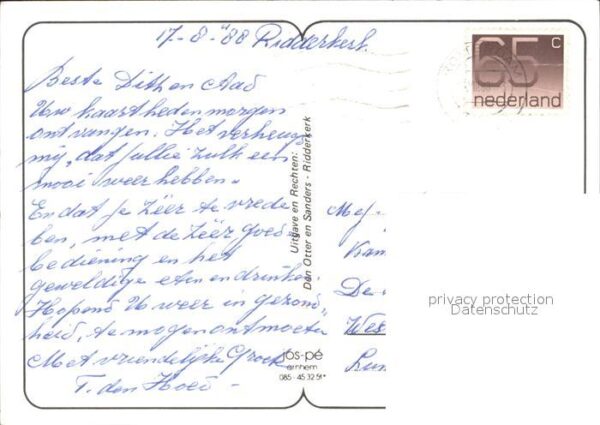 17-8-'88 Ridderkerk.
Beste Dith en Aad
Uw kaart heden morgen
ont vangen. Het verheug
mij, dat jullie zulk een
mooi weer hebben.
En dat je Zéér te vrede
ben, met de Zéér goed
bediening en het
geweldige eten en drinken.
Hopend U weer in gezond
heid, te mogen ontmoeten
Met vriendelijke Groet
T. den Hoed
Uitgave en Rechten:
Den Otter en Sanders - Ridderkerk
jos-pé
arnhem
085-45 32 51*
65 c
nederland
De
Wes
privacy protection
Datenschutz